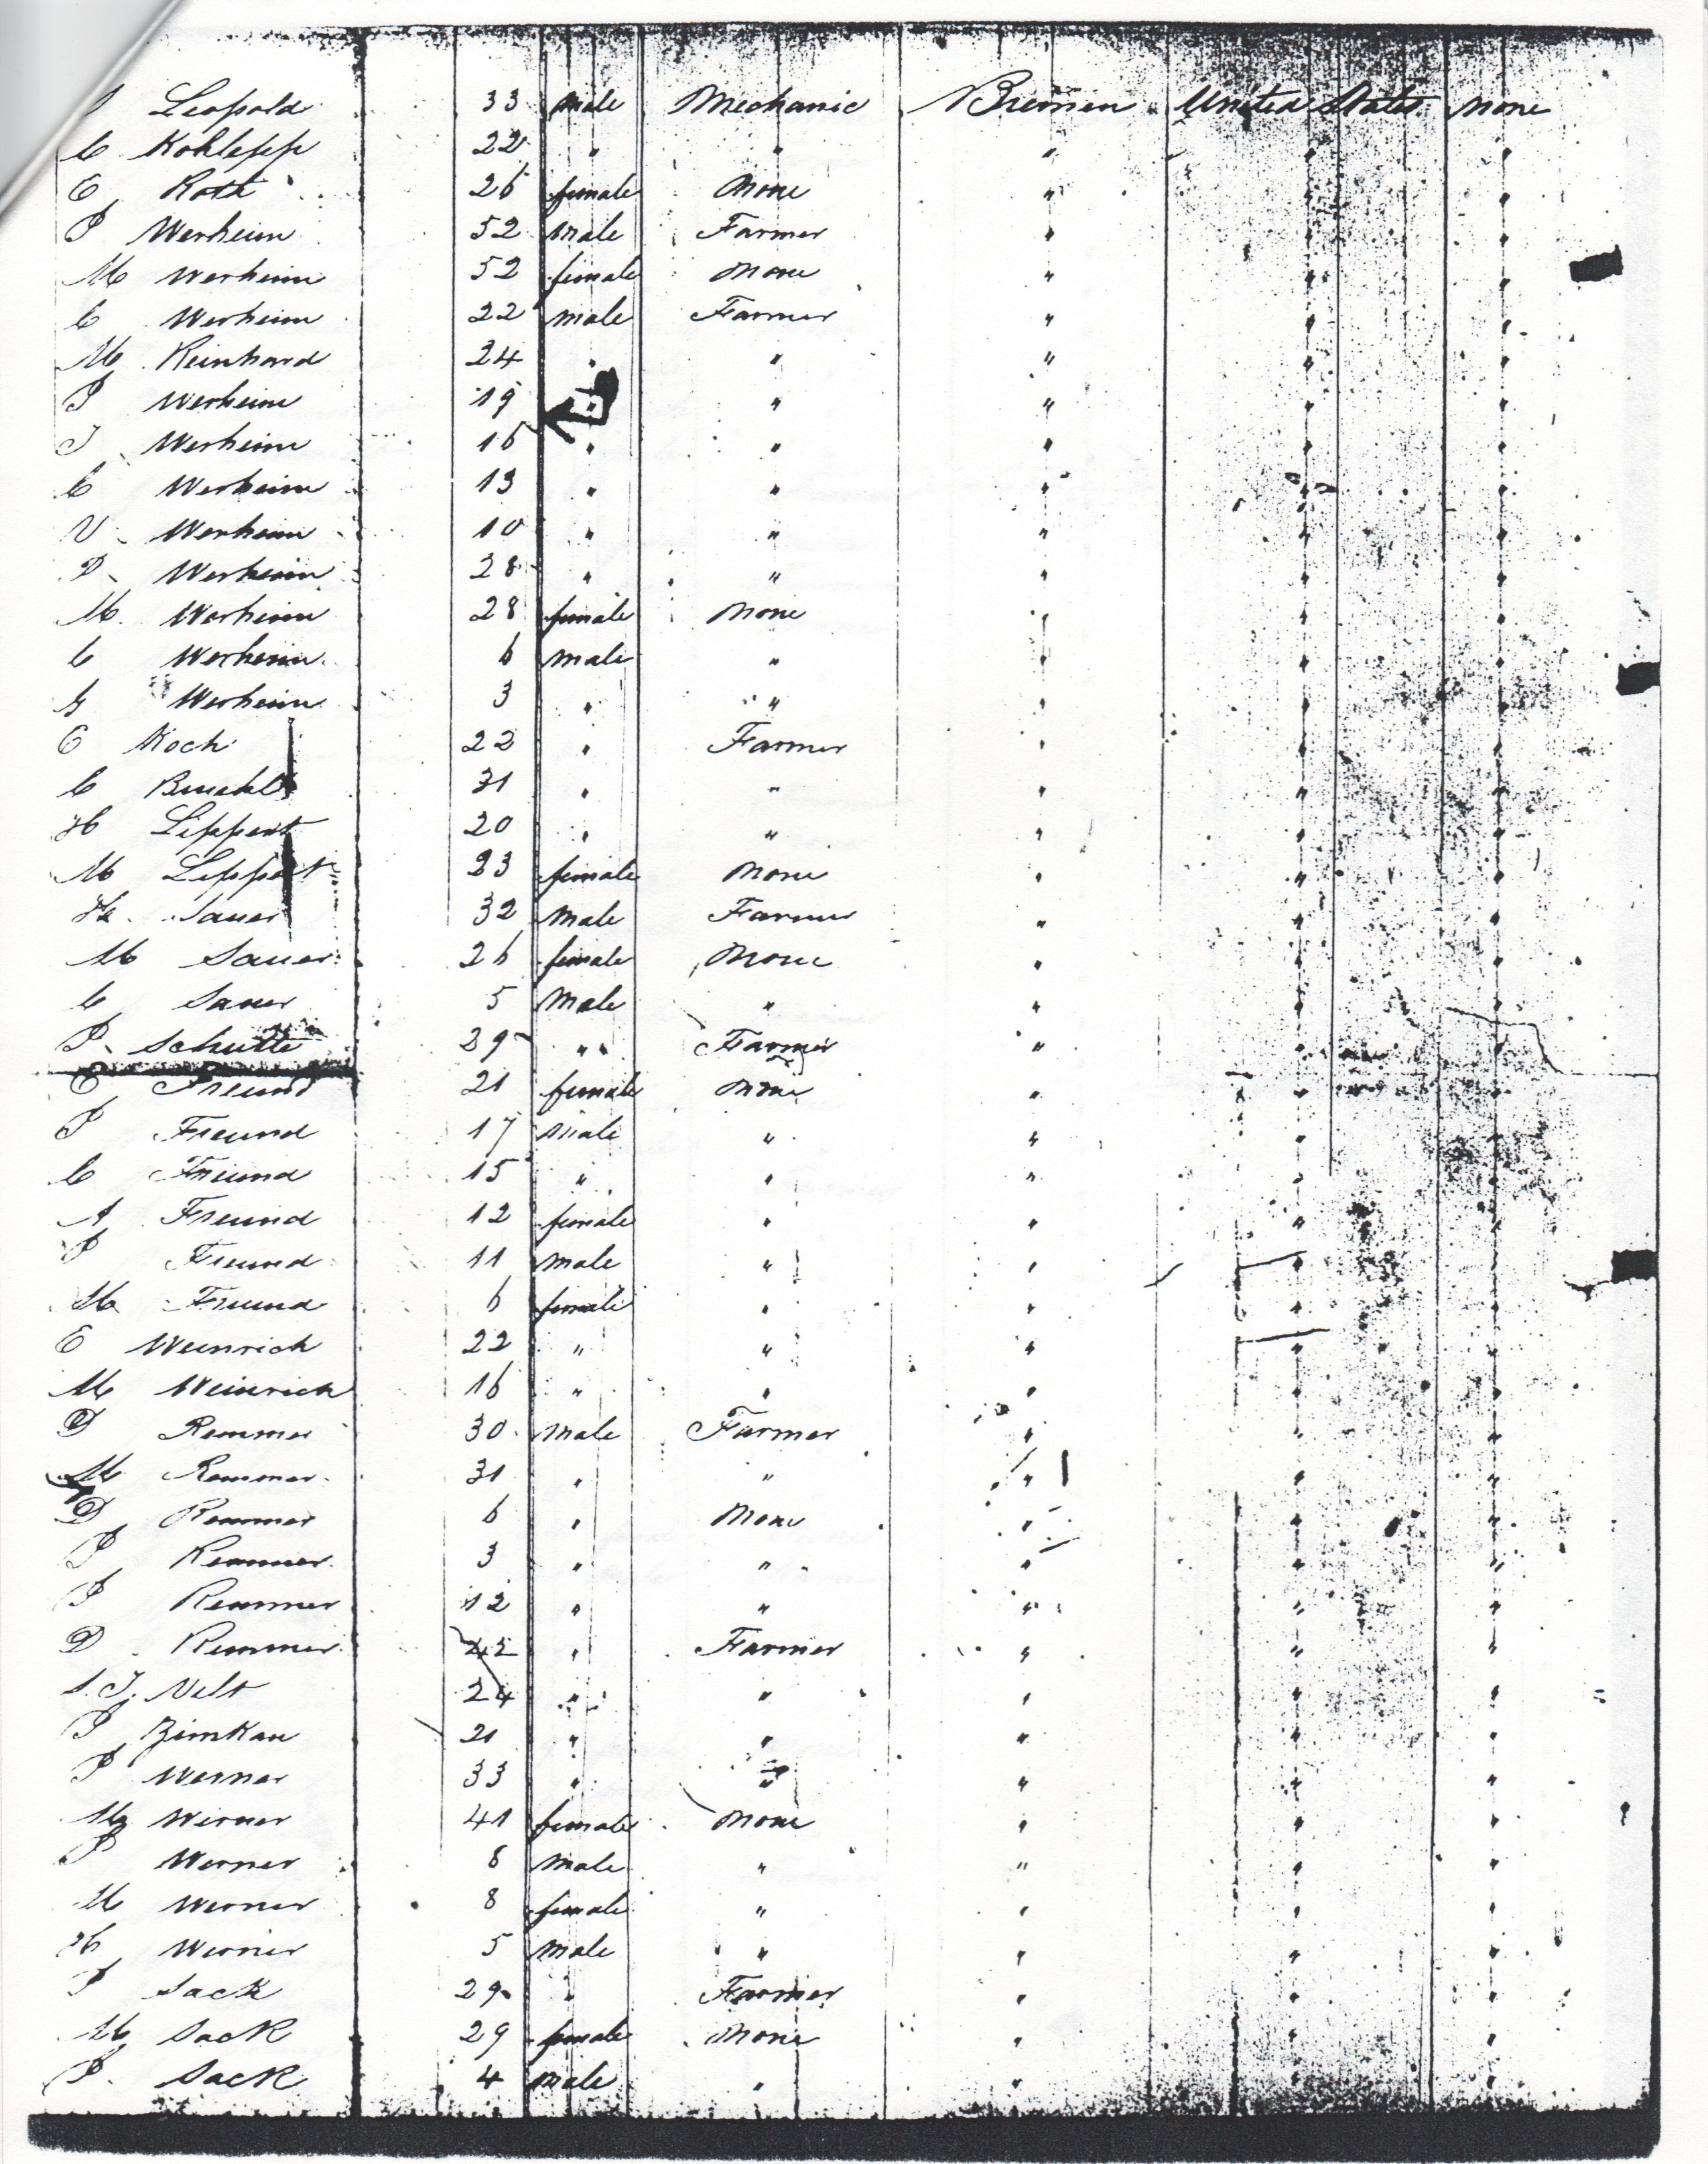 Leopold 33 male Mechanic Bremen United States none
C Kohlepp 22 " " " " "
E Roth 26 female None " " "
P Werheim 52 male Farmer " " "
M Werheim 52 female None " " "
C Werheim 22 male Farmer " " "
M Reinhard 24 " " " " "
P Werheim 19 " " " " "
J Werheim 16 " " " " "
C Werheim 13 " " " " "
V Werheim 10 " " " " "
P Werheim 28 " " " " "
M. Werheim 28 female None " " "
C Werheim 6 male " " " "
G Werheim 3 " " " " "
E Koch 22 " Farmer " " "
C 31 " " " " "
H Lippert 20 " " " " "
M Lippert 23 female None " " "
H. Sauer 32 Male Farmer " " "
M Sauer 26 female None " " "
C Sauer 5 Male " " " "
P. Schutte 29 " Farmer " " "
E Freund 21 female None " " "
P Freund 17 male " " " "
C Freund 15 " " " " "
A Freund 12 female " " " "
P Freund 11 male " " " "
M Freund 6 female " " " "
E Weinrich 22 " " " " "
M Weinrich 16 " " " " "
D Remmer 30 male Farmer " " "
M Remmer 31 " " " " "
D Remmer 6 " None " " "
P Remmer 3 " " " " "
P Remmer 12 " " " " "
D Remmer 42 " Farmer " " "
S. J. Velt 24 " " " " "
P Zimkau 21 " " " " "
P Werner 33 " " " " "
M Werner 41 female None " " "
P Werner 8 male " " " "
M Werner 8 female " " " "
H Werner 5 male " " " "
P Sack 29 " Farmer " " "
M Sack 29 female None " " "
P. Sack 4 male " " " "